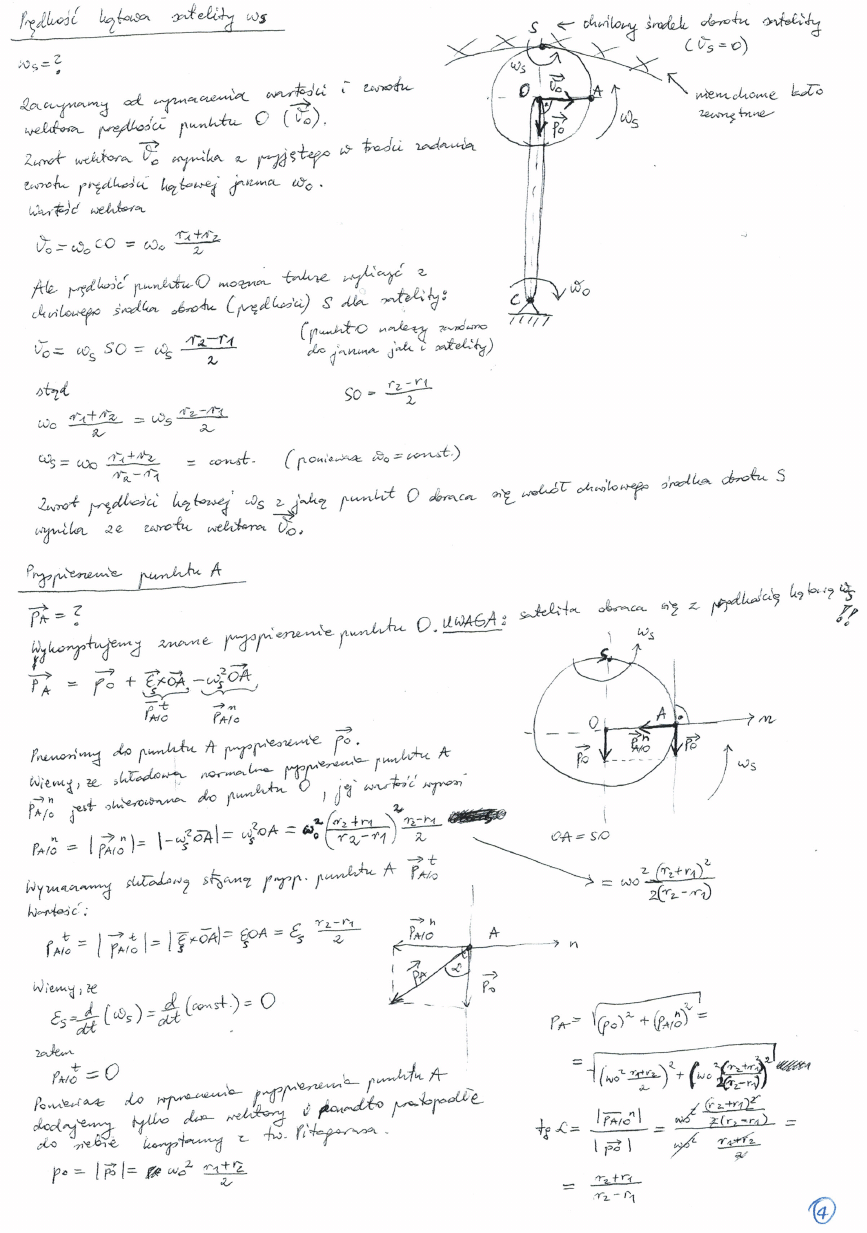 Prędkość kątowa satelity ωs
ωs = ?
Zaczynamy od wyznaczenia wartości i zwrotu
wektora prędkości punktu O (v⃗o).
Zwrot wektora v⃗o wynika z przyjętego w treści zadania
zwrotu prędkości kątowej jarzma ωo.
Wartość wektora
vo = ωo CO = ωo (r1+r2)/2
Ale prędkość punktu O można także wyliczyć z
chwilowego środka obrotu (prędkości) S dla satelity:
vo = ωs SO = ωs (r2−r1)/2
(punkt O należy zarówno
do jarzma jak i satelity)
stąd
SO = (r2−r1)/2
ωo (r1+r2)/2 = ωs (r2−r1)/2
ωs = ωo (r1+r2)/(r2−r1) = const. (ponieważ ωo = const.)
Zwrot prędkości kątowej ωs z jaką punkt O obraca się wokół chwilowego środka obrotu S
wynika ze zwrotu wektora v⃗o.
S ← chwilowy środek obrotu satelity
(v⃗s = 0)
ωs
O
v⃗o
A
p⃗o
ωs
nieruchome koło
zewnętrzne
C
ωo
Przyspieszenie punktu A
p⃗A = ?
Wykorzystujemy znane przyspieszenie punktu O. UWAGA: satelita obraca się z prędkością kątową ωs !!
p⃗A = p⃗o + ε⃗s×O⃗A − ωs² O⃗A
p⃗A/O^t p⃗A/O^n
Przenosimy do punktu A przyspieszenie p⃗o.
Wiemy, że składowa normalna przyspieszenia punktu A
p⃗A/O^n jest skierowana do punktu O, jej wartość wynosi
pA/O^n = |p⃗A/O^n| = |−ωs² O⃗A| = ωs² OA = ωo² ((r2+r1)/(r2−r1))² (r2−r1)/2
= ωo² (r2+r1)²/(2(r2−r1))
S
ωs
O
A
n
p⃗o
p⃗A/O^n
p⃗o
ωs
OA = SO
Wyznaczamy składową styczną przysp. punktu A p⃗A/O^t
Wartość:
pA/O^t = |p⃗A/O^t| = |ε⃗s×O⃗A| = εs OA = εs (r2−r1)/2
Wiemy, że
εs = d/dt (ωs) = d/dt (const.) = 0
zatem
pA/O^t = 0
Ponieważ do wyznaczenia przyspieszenia punktu A
dodajemy tylko dwa wektory i ponadto prostopadłe
do siebie korzystamy z tw. Pitagorasa.
po = |p⃗o| = ωo² (r1+r2)/2
p⃗A/O^n
A
n
p⃗A
α
p⃗o
pA = √((po)² + (pA/O^n)²) =
= √((ωo² (r1+r2)/2)² + (ωo² (r2+r1)²/(2(r2−r1)))²)
tg α = |p⃗A/O^n| / |p⃗o| = (ωo² (r2+r1)²/(2(r2−r1))) / (ωo² (r1+r2)/2) =
= (r2+r1)/(r2−r1)
4